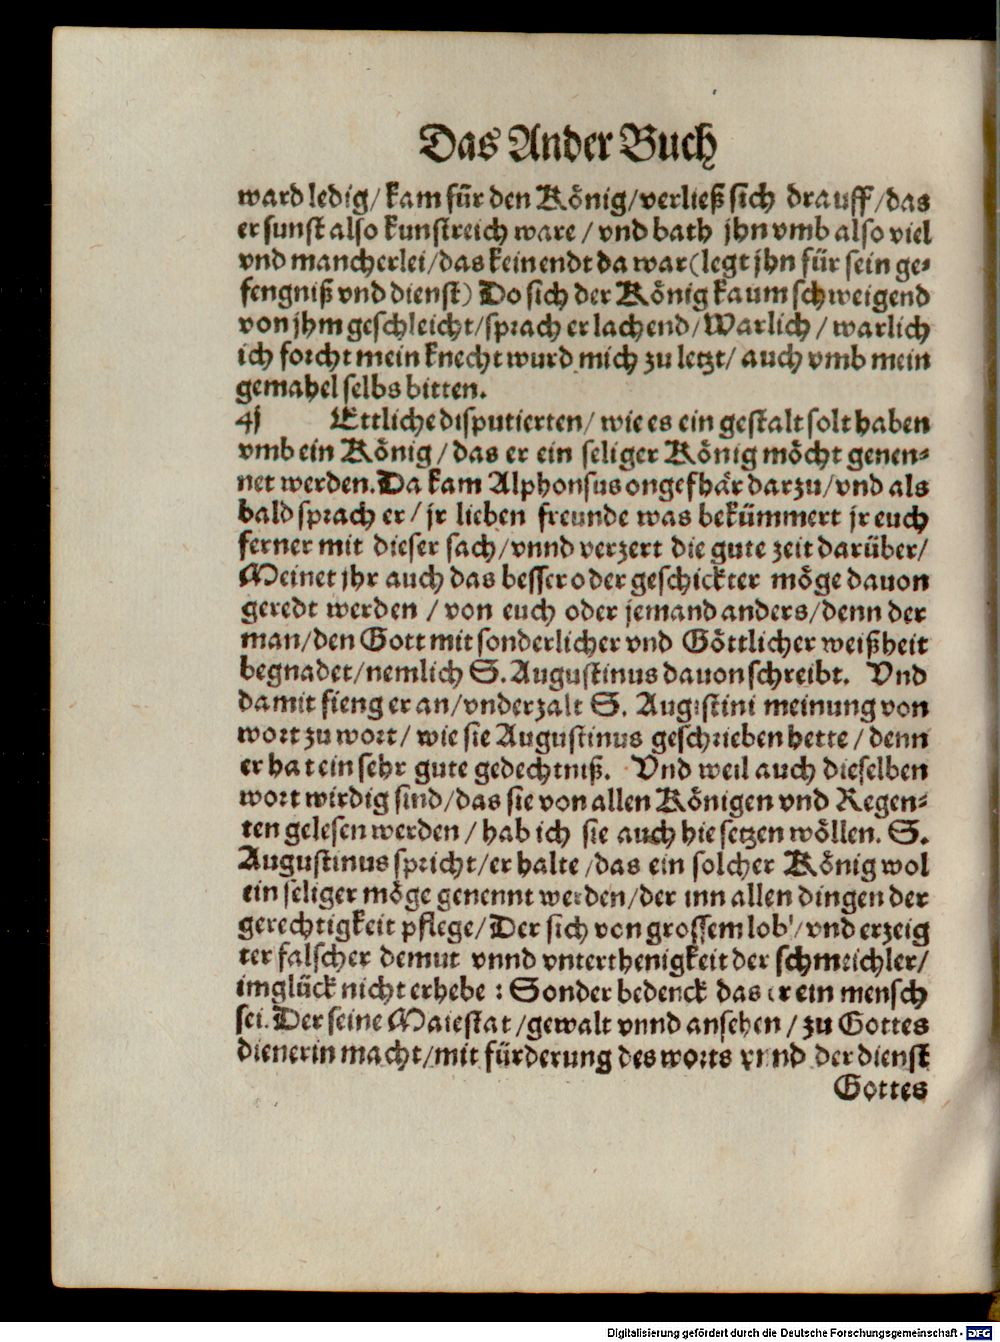 Das Ander Buch
ward ledig/ kam für den König/verließ sich drauff/das
er sunst also kunstreich ware / vnd bath jhn vmb also viel
vnd mancherlei/das kein endt da war(legt jhn für sein ge-
fengniß vnd dienst) Do sich der König kaum schweigend
von jhm geschleicht/sprach er lachend/Warlich / warlich
ich forcht mein knecht wurd mich zu letzt/ auch vmb mein
gemahel selbs bitten.
4j Ettliche disputierten/ wie es ein gestalt solt haben
vmb ein König /das er ein seliger König möcht genen-
net werden.Da kam Alphonsus ongefhär darzu/vnd als
bald sprach er/ jr lieben freunde was bekümmert jr euch
ferner mit dieser sach/vnnd verzert die gute zeit darüber/
Meinet jhr auch das besser oder geschickter möge dauon
geredt werden / von euch oder jemand anders/denn der
man/den Gott mit sonderlicher vnd Göttlicher weißheit
begnadet/nemlich S. Augustinus dauon schreibt. Vnd
damit fieng er an/vnd erzalt S. Augustini meinung von
wort zu wort/ wie sie Augustinus geschrieben hette / denn
er hat ein sehr gute gedechtniß. Vnd weil auch dieselben
wort wirdig sind/das sie von allen Königen vnd Regen-
ten gelesen werden / hab ich sie auch hie setzen wöllen. S.
Augustinus spricht/er halte /das ein solcher König wol
ein seliger möge genennt werden/der inn allen dingen der
gerechtigkeit pflege/Der sich von grossem lob/vnd erzeig
ter falscher demut vnnd vnterthenigkeit der schmeichler/
im glück nicht erhebe : Sonder bedenck das er ein mensch
sei.Der seine Maiestat /gewalt vnnd ansehen / zu Gottes
dienerin macht/mit fürderung des worts vnnd der dienst
Gottes
Digitalisierung gefördert durch die Deutsche Forschungsgemeinschaft - DFG